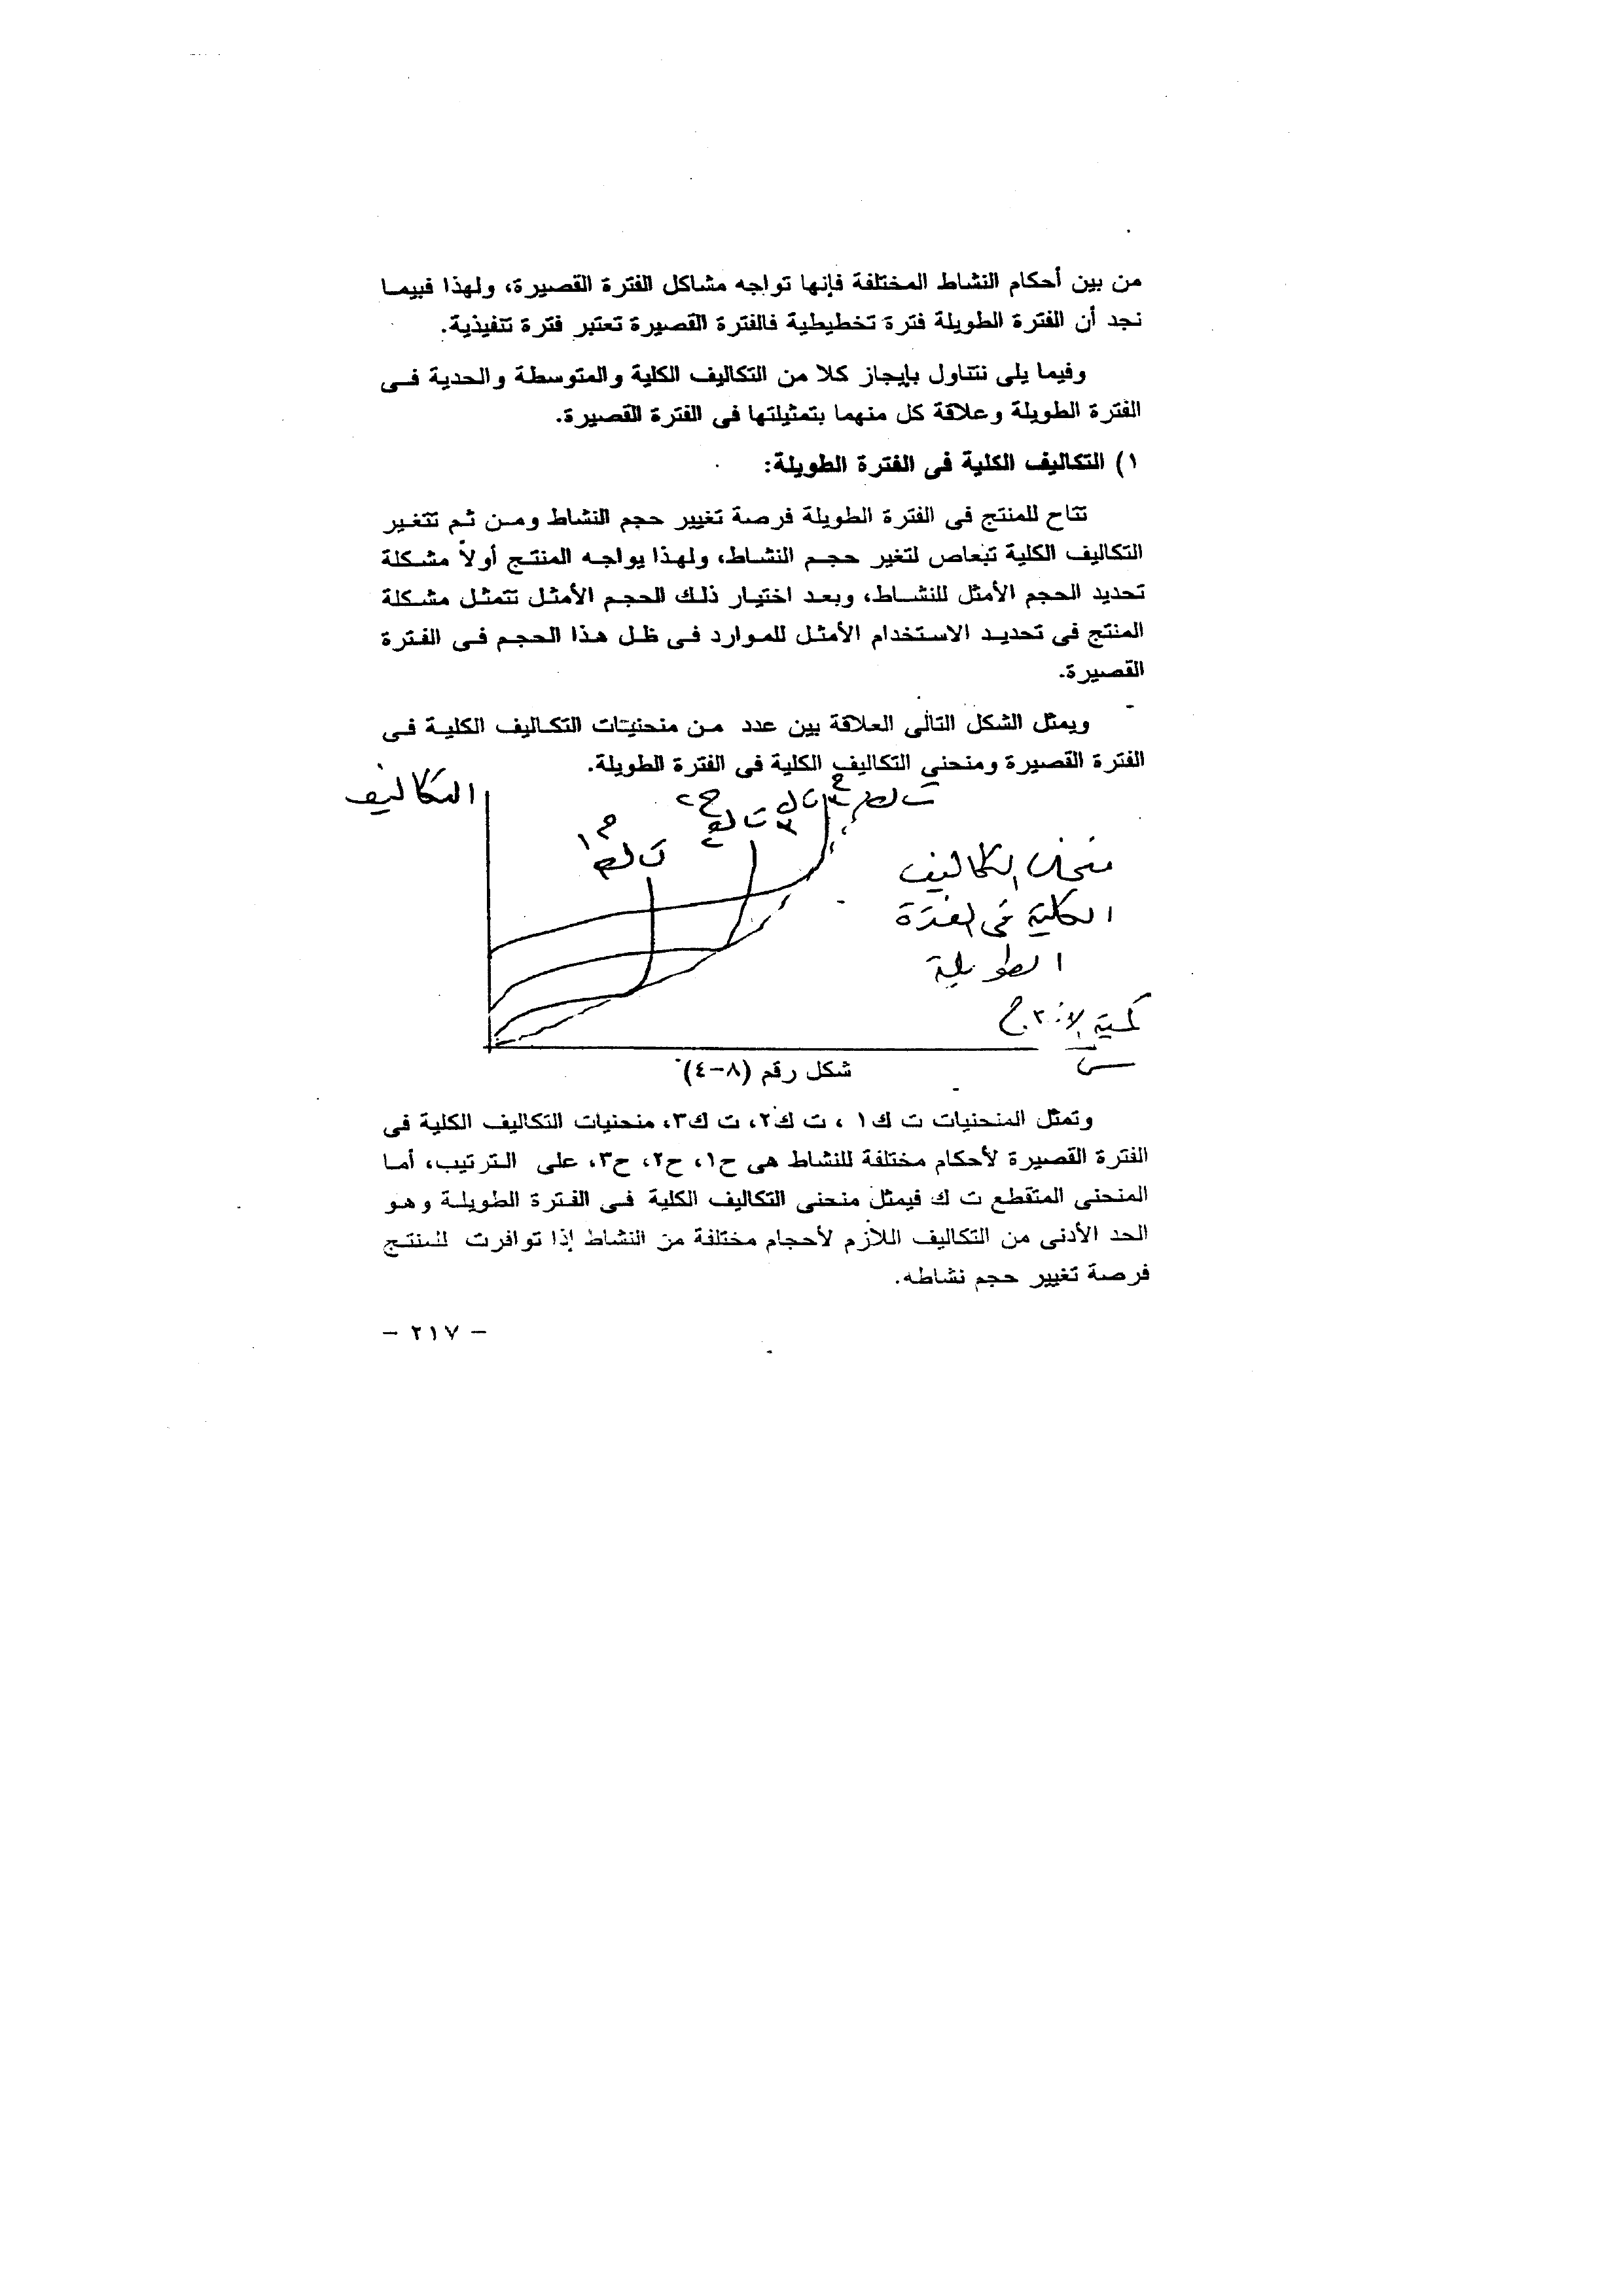 من بين أحكام النشاط المختلفة فإنها تواجه مشاكل الفترة القصيرة، ولهذا فبيما
نجد أن الفترة الطويلة فترة تخطيطية فالفترة القصيرة تعتبر فترة تنفيذية.
وفيما يلى نتناول بإيجاز كلا من التكاليف الكلية والمتوسطة والحدية فى
الفترة الطويلة وعلاقة كل منهما بتمثيلتها فى الفترة القصيرة.
١) التكاليف الكلية فى الفترة الطويلة:
تتاح للمنتج فى الفترة الطويلة فرصة تغيير حجم النشاط ومن ثم تتغير
التكاليف الكلية تبعاص لتغير حجم النشاط، ولهذا يواجه المنتج أولاً مشكلة
تحديد الحجم الأمثل للنشاط، وبعد اختيار ذلك الحجم الأمثل تتمثل مشكلة
المنتج فى تحديد الاستخدام الأمثل للموارد فى ظل هذا الحجم فى الفترة
القصيرة.
ويمثل الشكل التالى العلاقة بين عدد من منحنيات التكاليف الكلية فى
الفترة القصيرة ومنحني التكاليف الكلية فى الفترة الطويلة.
التكاليف
ح٣
ح٢
ح١
منحنى التكاليف
الكلية فى الفترة
الطويلة
كمية الإنتاج
س
شكل رقم (٨-٤)
وتمثل المنحنيات ت ك١ ، ت ك٢، ت ك٣، منحنيات التكاليف الكلية فى
الفترة القصيرة لأحكام مختلفة للنشاط هى ح١، ح٢، ح٣، على الترتيب، أما
المنحنى المتقطع ت ك فيمثل منحنى التكاليف الكلية فى الفترة الطويلة وهو
الحد الأدنى من التكاليف اللازم لأحجام مختلفة من النشاط إذا توافرت للمنتج
فرصة تغيير حجم نشاطه.
- ٢١٧ -